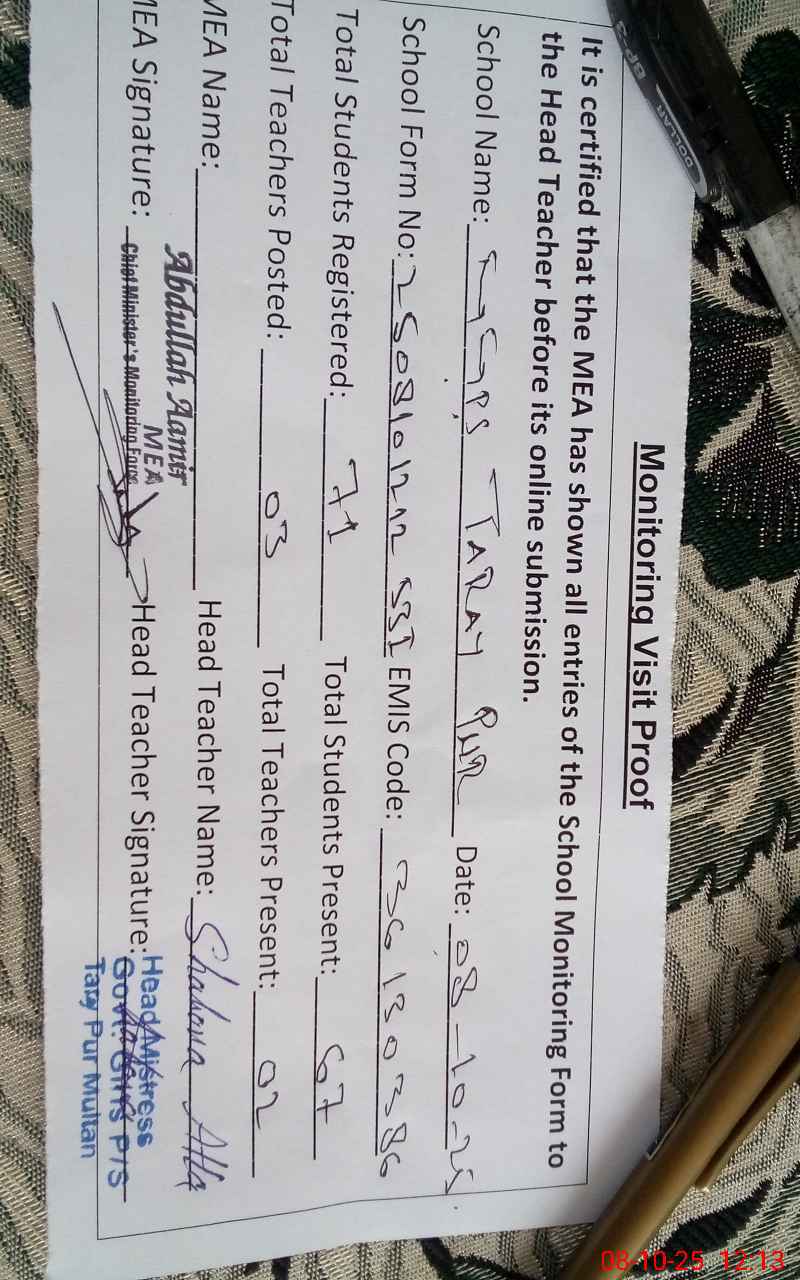 Monitoring Visit Proof
It is certified that the MEA has shown all entries of the School Monitoring Form to
the Head Teacher before its online submission.
School Name: GGPS TARAY PUR Date: 08-10-25
School Form No: 2508101212 531 EMIS Code: 36130386
Total Students Registered: 71 Total Students Present: 67
Total Teachers Posted: 03 Total Teachers Present: 02
MEA Name: Abdullah Aamir Head Teacher Name: Shabana
MEA
MEA Signature: Chief Minister's Monitoring Force Head Teacher Signature:
Head Mistress
Govt. Girls P/S
Taray Pur Multan
DOLLAR
BP-3
08-10-25 12:13